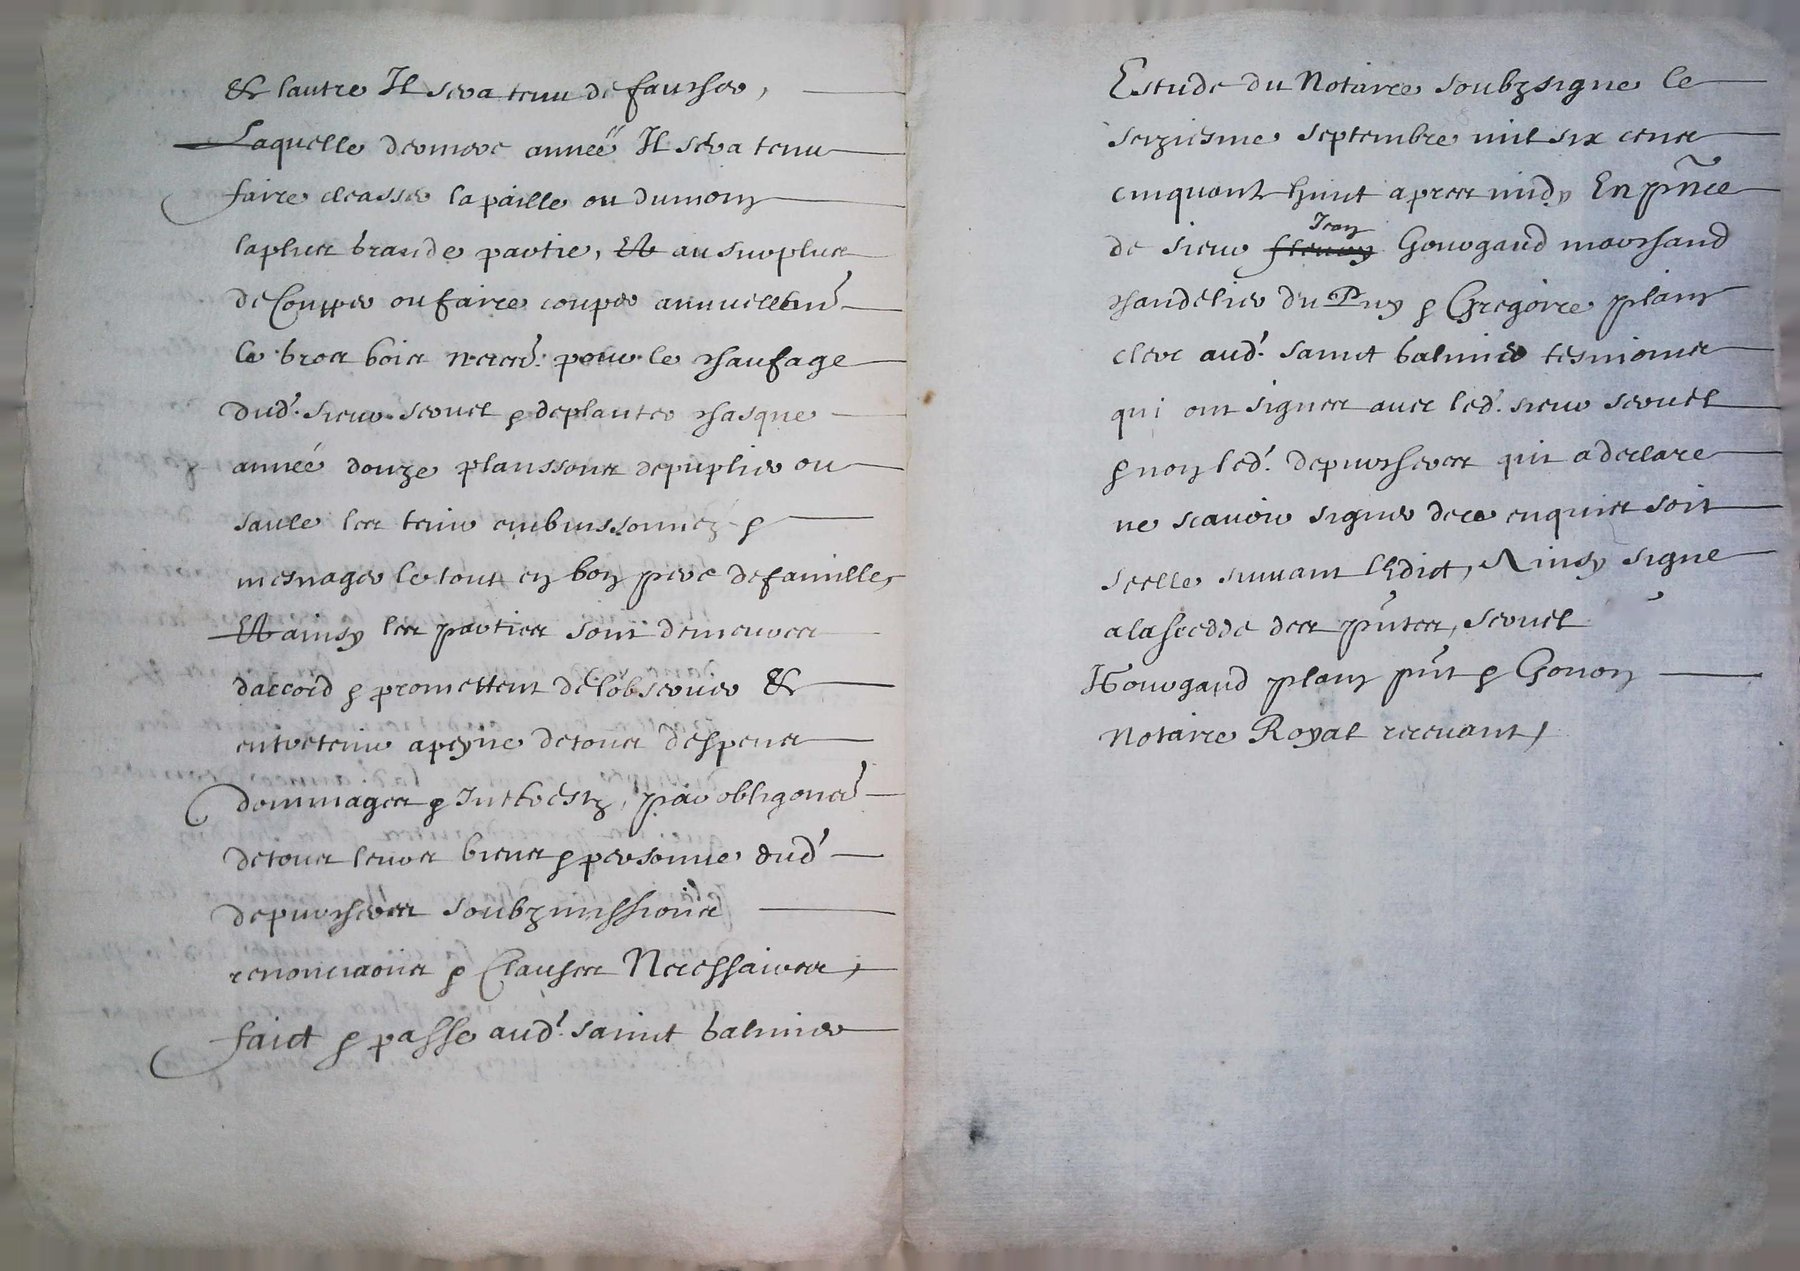 & lautre Il sera tenu de faucher,
Laquelle derniere année Il sera tenu
faire cleasser la paille ou du moins
la plus grande partie, Et au surplus
de Coupper ou faire couper annuellemt
le gros bois necesre. pour le chaufage
dudt. sieur seruel & de planter chasque
année douze planssons de puplier ou
saule les tenir embuissonnez &
mesnager le tout en bon pere de famille,
Et ainsy les parties sont demeurees
daccord & promettent de lobseruer &
entretenir a peyne de tous despens
dommages & Interestz, par obligaons
de tous leurs biens & personne dudt
depurcheres soubzmissions
renonciaons & Clauses Necessaires,
faict & passe audt. sainct galmier
Estude du Notaire soubzsigne le
seziesme septembre mil six cens
cinquant huict apres midy En pñce
de sieur Jean Gourgaud marchand
chandelier du Puy & Gregoire plany
clerc audt. sainct galmier tesmoins
qui ont signes auec ledt. sieur seruel
& non ledt. depurcheres qui a declare
ne scauoir signer de ce enquis soit
scelle suiuant lEdict, Ainsy signe
a la scedde des pñtes, seruel
Gourgaud plany pñt & Gonon
Notaire Royal receuant,